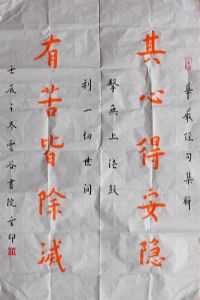 華嚴經句集
其心得安隐
擊無上法鼓
利一切世间
有苦皆除滅
壬辰之冬雲谷書院